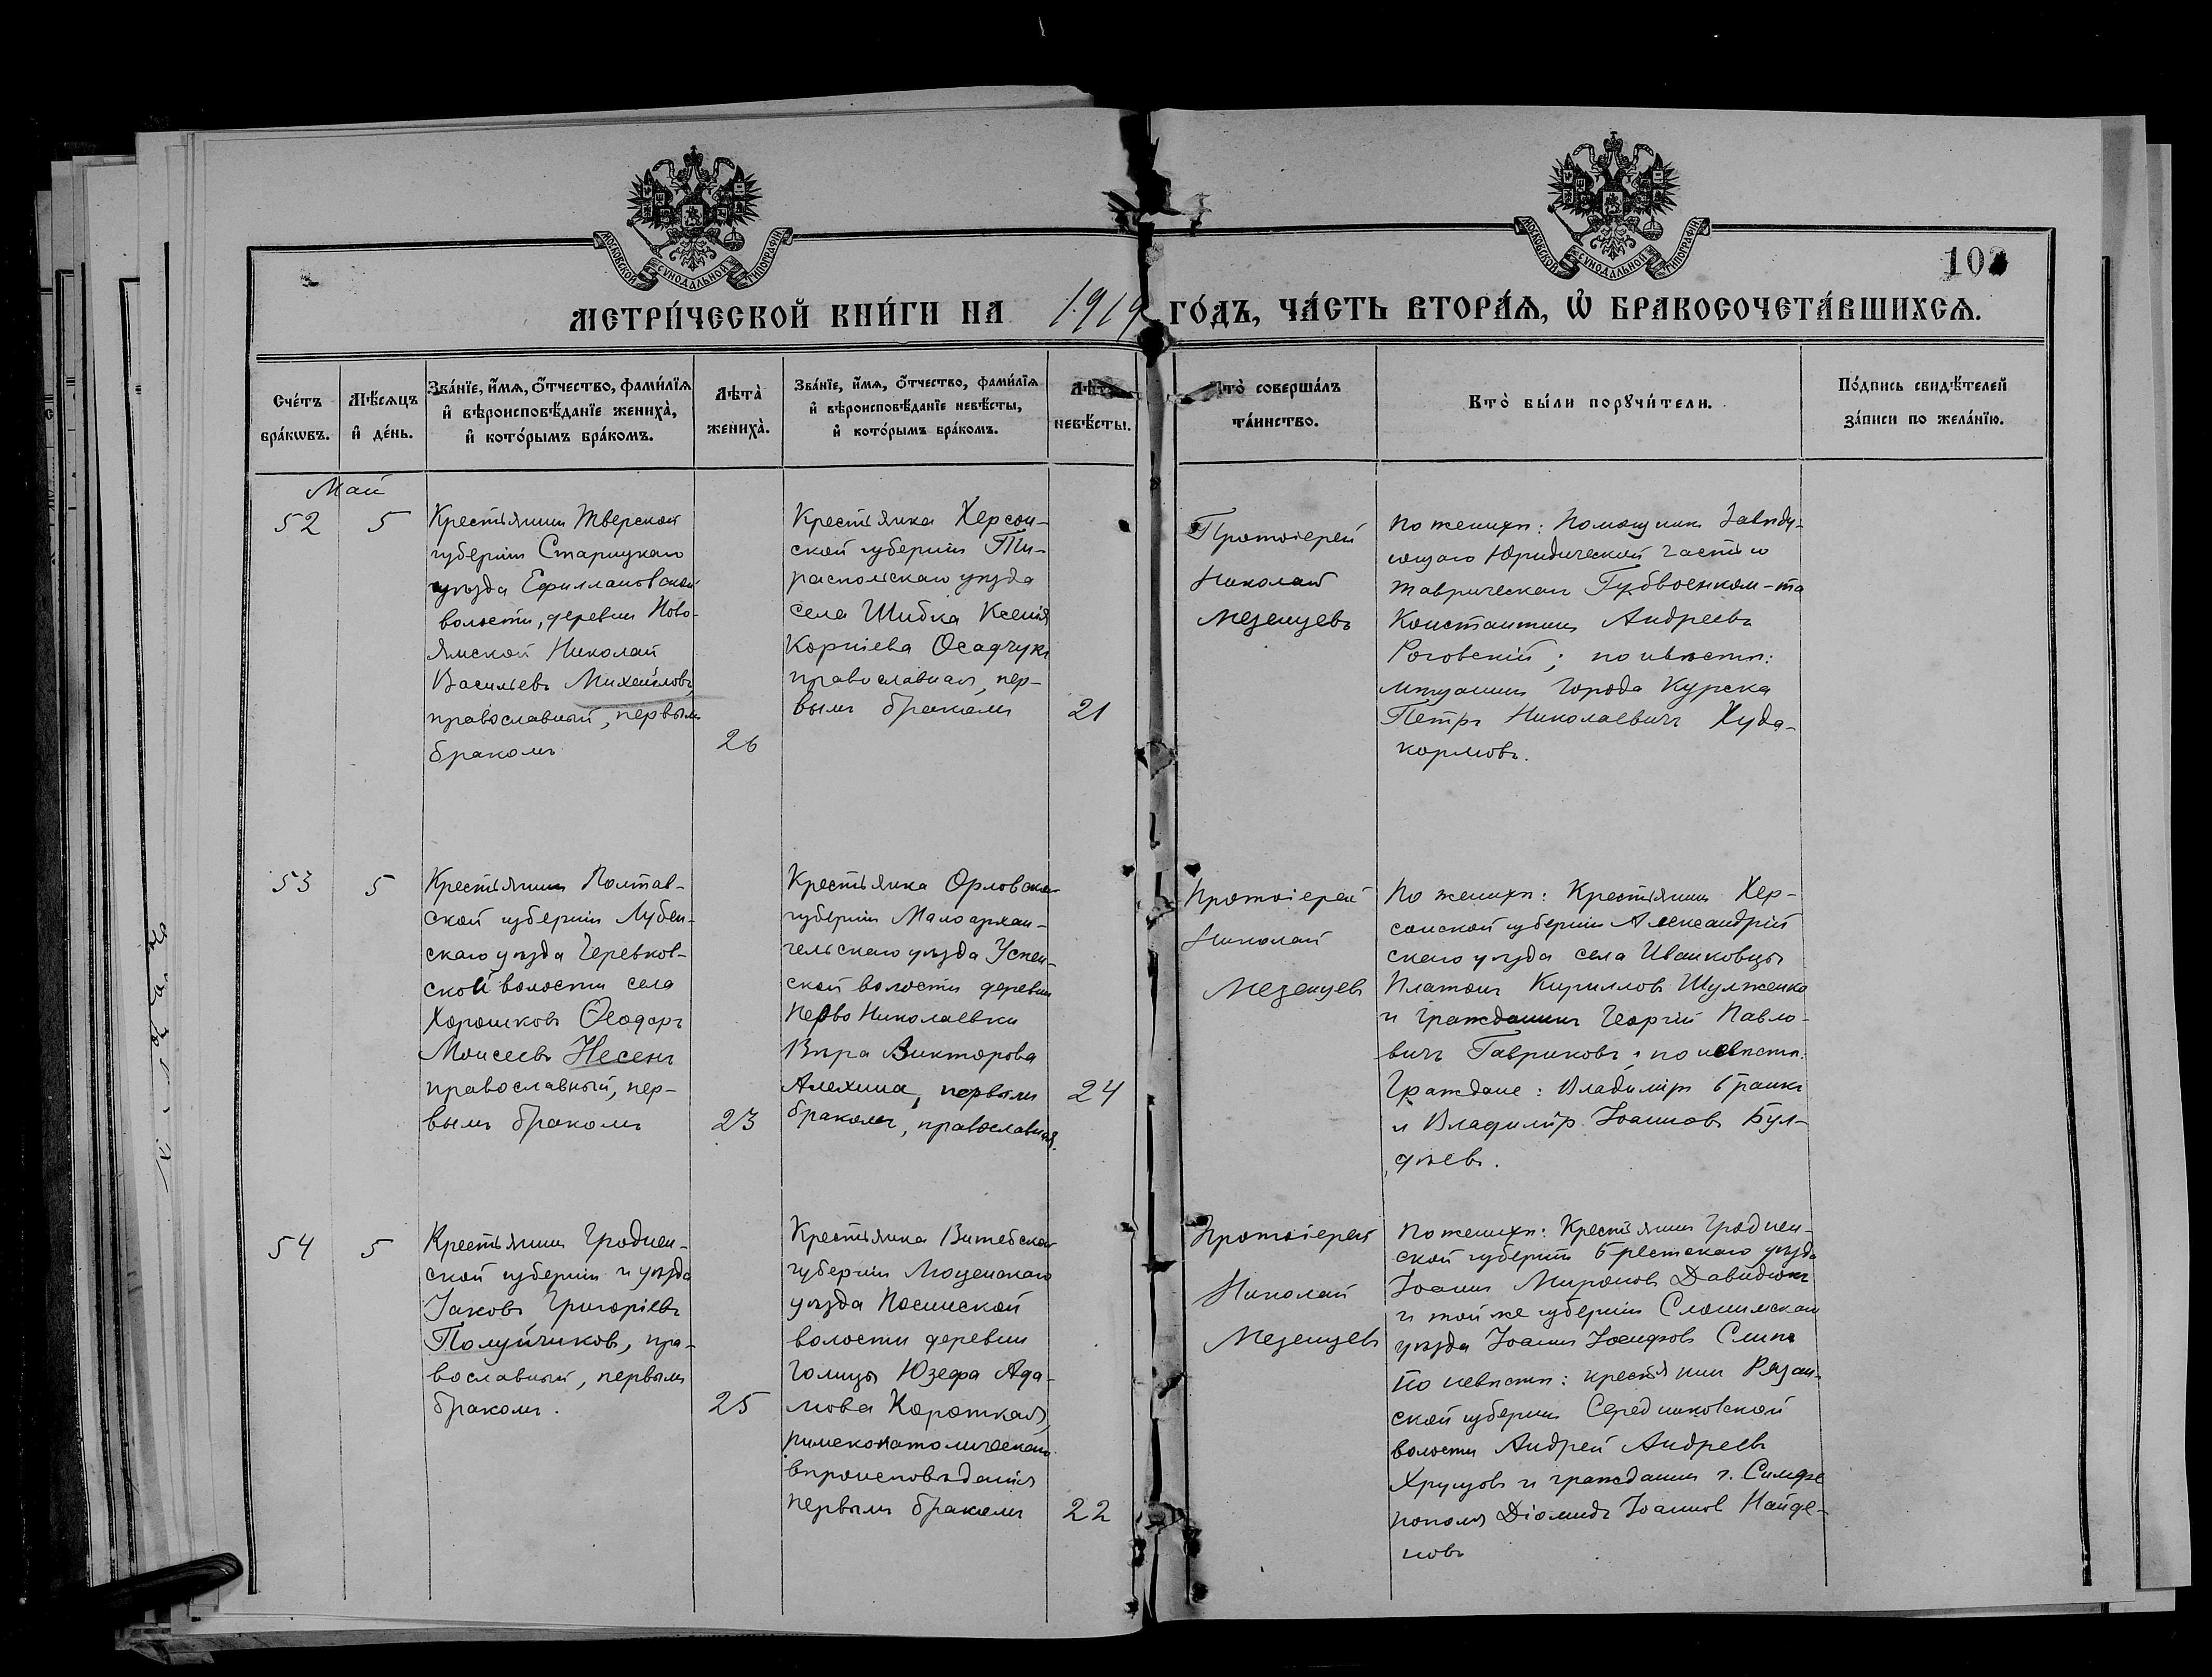 МОСКОВСКОЙ СѴНОДАЛЬНОЙ ТИПОГРАФІИ
МОСКОВСКОЙ СѴНОДАЛЬНОЙ ТИПОГРАФІИ
МЕТРИ́ЧЕСКОЙ КНИ́ГИ НА 1919 ГО́ДЪ, ЧА́СТЬ ВТОРА́Ѧ, Ѡ҆ БРАКОСОЧЕТА́ВШИХСѦ.
Сче́тъ
бра́кѡвъ.
Мѣ́сѧцъ
и҆ де́нь.
Зва́нїе, и҆́мѧ, ѻ҆́тчество, фами́лїѧ
и҆ вѣроисповѣ́данїе жениха̀,
и҆ кото́рымъ бра́комъ.
Лѣта̀
жениха̀.
Зва́нїе, и҆́мѧ, ѻ҆́тчество, фами́лїѧ
и҆ вѣроисповѣ́данїе невѣ́сты,
и҆ кото́рымъ бра́комъ.
Лѣта̀
невѣ́сты.
Кто̀ соверша́лъ
та́инство.
Кто̀ бы́ли порꙋчи́тели.
По́дпись свидѣ́телей
за́писи по жела́нїю.
Май
52
5
Крестьянинъ Тверской
губерніи Старицкаго
уѣзда
волости, деревни Ново-
Ямской Николай
Васильевъ Михайловъ,
православный, первымъ
бракомъ
26
Крестьянка Херсон-
ской губерніи Ти-
распольскаго уѣзда
села Шибка Ксенія
Корніева Осадчукъ
православная, пер-
вымъ бракомъ
21
Протоіерей
Николай
Мезенцевъ
По женихѣ: Помощникъ Завѣду-
ющаго Юридической частью
Таврическаго Губвоенком-та
Константинъ Андреевъ
Роговскій; по невѣстѣ:
мѣщанинъ города Курска
Петръ Николаевичъ Худо-
кормовъ.
53
5
Крестьянинъ Полтав-
ской губерніи Лубен-
скаго уѣзда Черевков-
ской волости села
Хорошковъ Ѳеодоръ
Моисеевъ Несенъ
православный, пер-
вымъ бракомъ
23
Крестьянка Орловской
губерніи Малоархан-
гельскаго уѣзда Успен-
ской волости деревни
Перво Николаевки
Вѣра Викторова
Алехина, первымъ
бракомъ, православная.
24
Протоіерей
Николай
Мезенцевъ
По женихѣ: Крестьянинъ Хер-
сонской губерніи Александрій
скаго уѣзда села Иванковцы
Платонъ Кирилловъ Шулженко
и гражданинъ Георгій Павло-
вичъ Гавриковъ; по невѣстѣ:
Граждане: Владиміръ
и Владиміръ Іоанновъ Бул-
дѣевъ.
54
5
Крестьянинъ Гроднен-
ской губерніи и уѣзда
Іаковъ Григоріевъ
Полуйчиковъ, пра-
вославный, первымъ
бракомъ.
25
Крестьянка Витебской
губерніи Люценскаго
уѣзда Посинской
волости деревни
Голицы Юзефа Ада-
мова Короткая,
римскокатолическаго
вѣроисповѣданія
первымъ бракомъ
22
Протоіерей
Николай
Мезенцевъ
По женихѣ: Крестьянинъ Гроднен-
ской губерніи Брестскаго уѣзда
Іоаннъ Мироновъ Давидюкъ
и той же губерніи Слонимскаго
уѣзда Іоаннъ Іосифовъ
По невѣстѣ: крестьянинъ Рязан-
ской губерніи Середниковской
волости Андрей Андреевъ
Хрущовъ и гражданинъ г. Симфе
рополя Діомидъ Іоанновъ Найде-
новъ